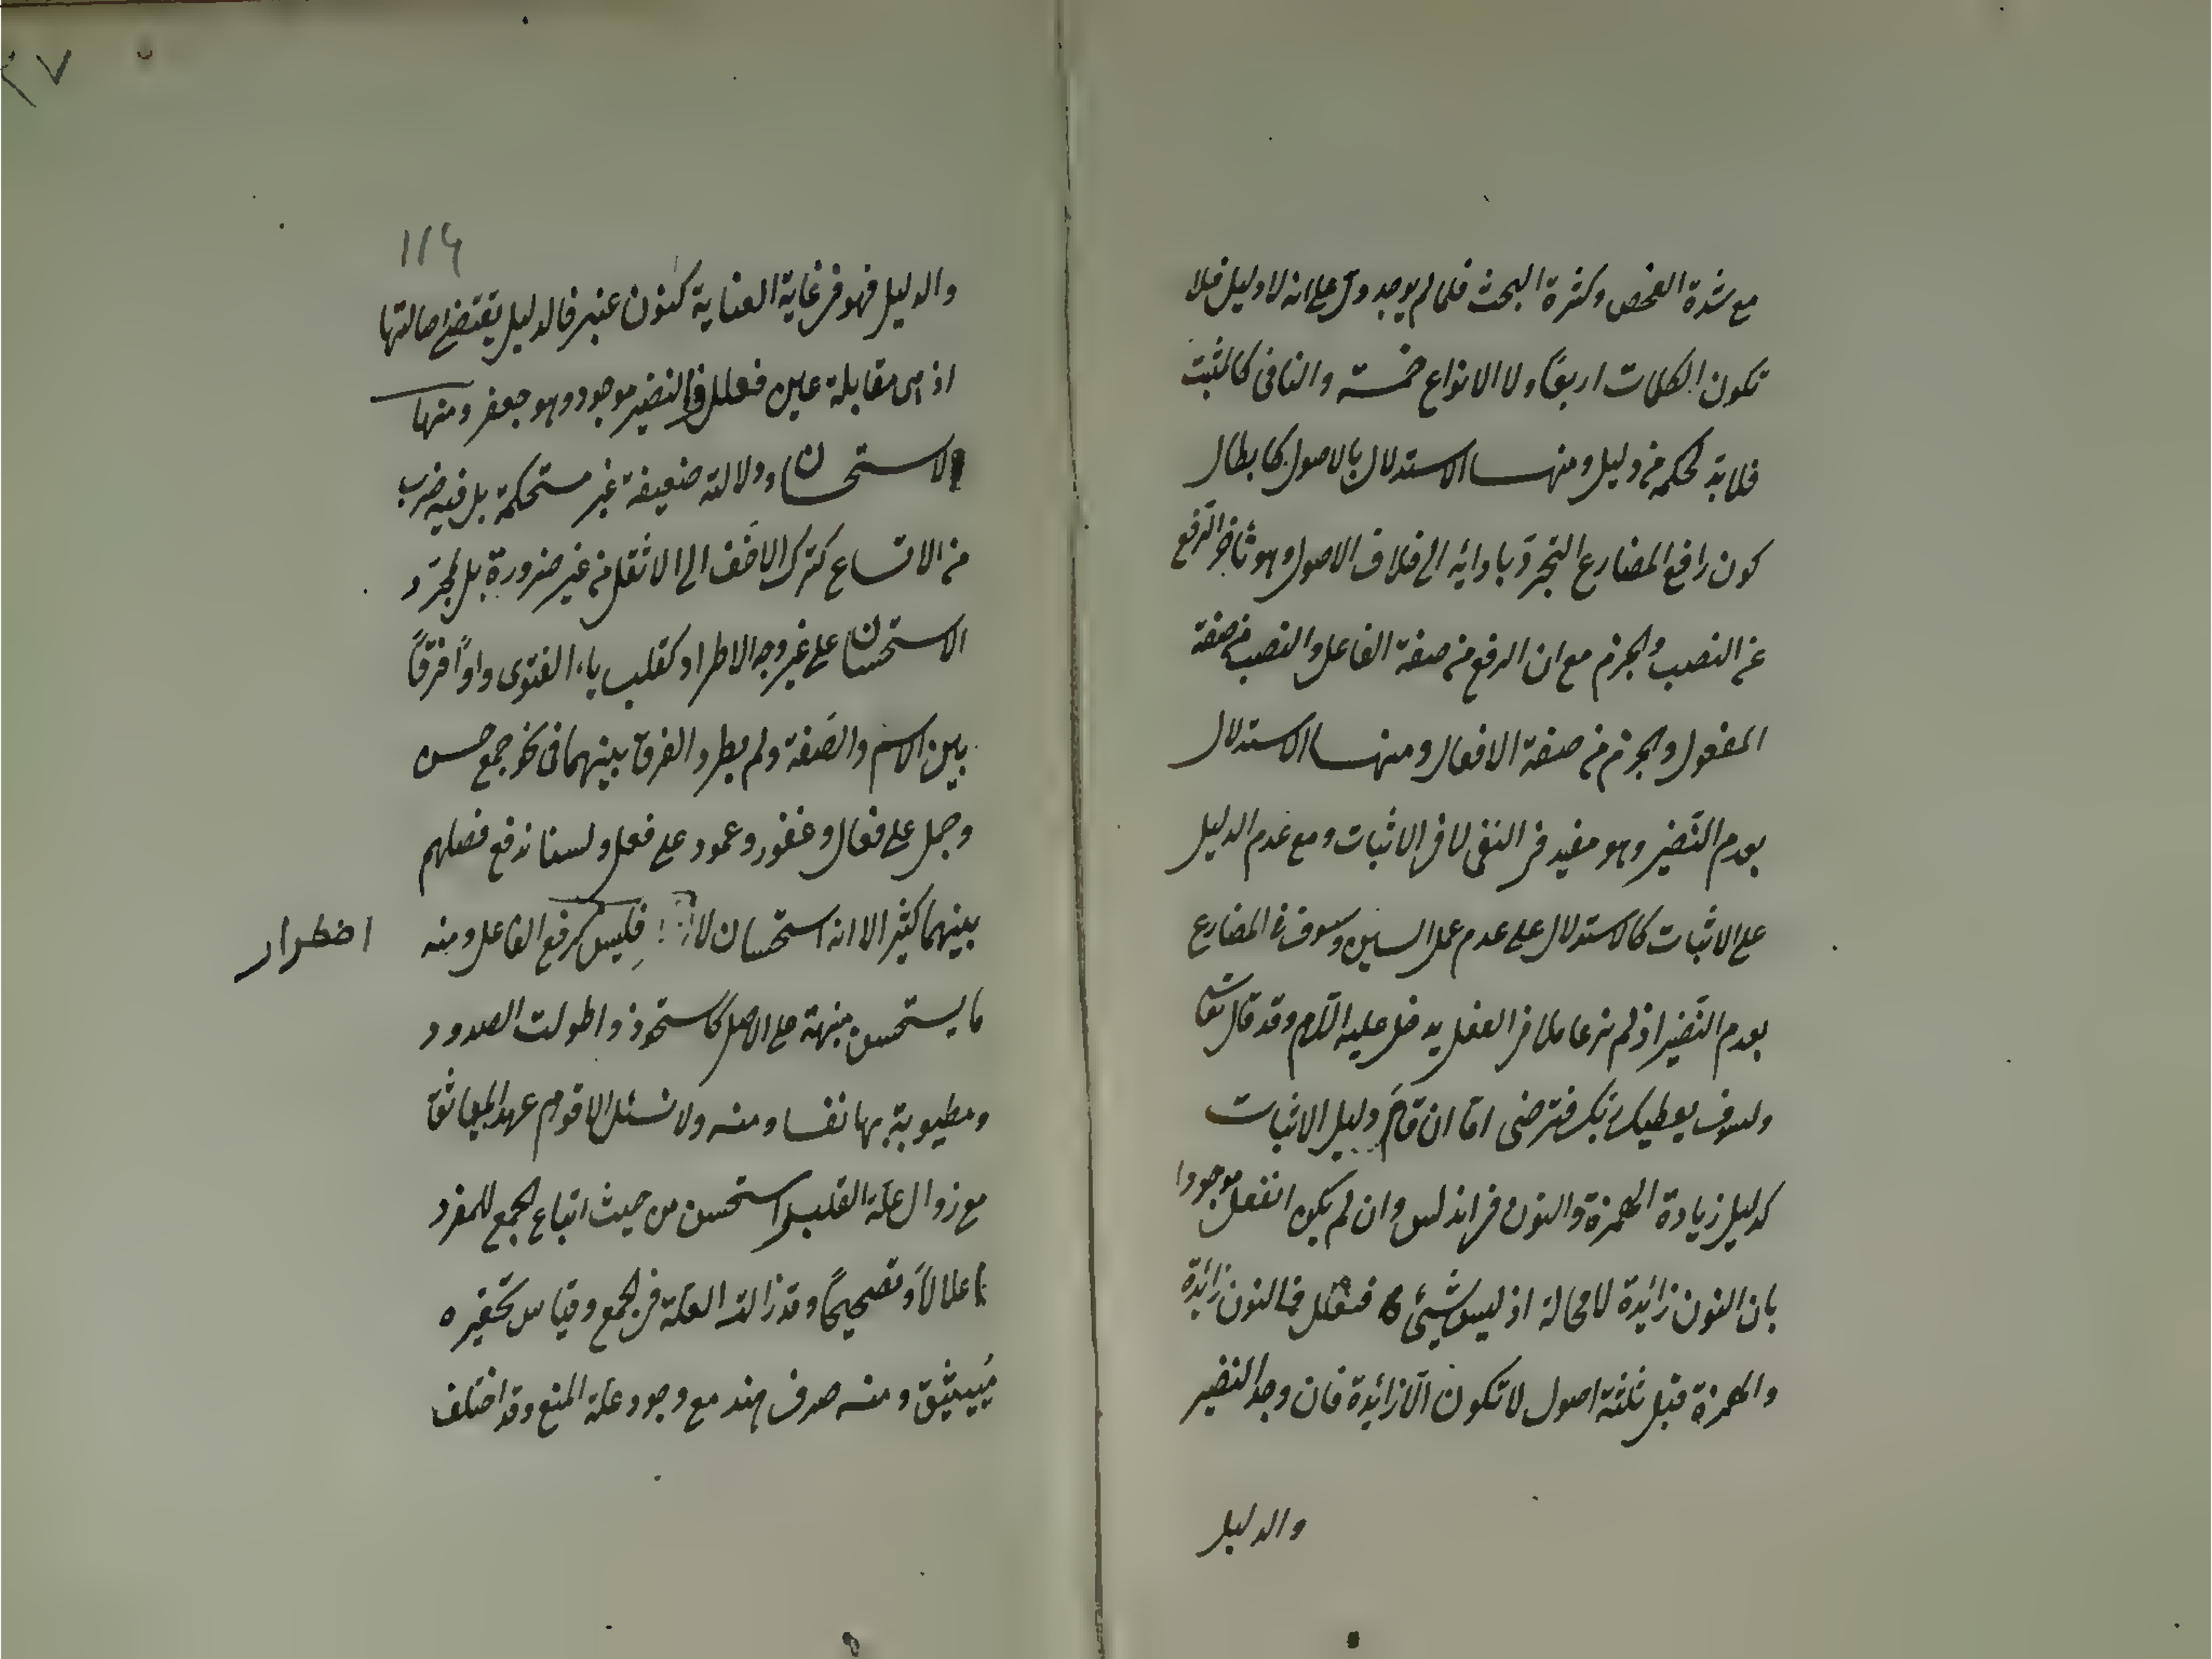 مع شدة الفحص وكثرة البحث فلما لم يوجد دل على انه لا دليل فلا
تكون الكلمات اربعًا ولا الانواع خمسة والنافى كالمثبت
فلا بد لحكمه من دليل ومنها الاستدلال بالاصول كابطال
كون رافع المضارع التجرد بادائه الى خلاف الاصول وهو تاخر الرفع
عن النصب والجزم مع ان الرفع من صفة الفاعل والنصب من صفة
المفعول والجزم من صفة الافعال ومنها الاستدلال
بعدم النضير وهو مفيد فى النفى لا فى الاثبات ومع عدم الدليل
على الاثبات كالاستدلال على عدم عمل السين وسوف فى المضارع
بعدم النضير اذ لم نر عاملا فى الفعل يدخل عليه اللام وقد قال تعالى
ولسوف يعطيك ربك فترضى اما ان قام دليل الاثبات
كدليل زيادة الهمزة والنون فى اندلس وان لم يكن انفعل موجودا
بان النون زائدة لا محالة اذ ليس شيئ فنعلل فالنون زائدة
والهمزة قبل ثلثة اصول لا تكون الا زائدة فان وجد النضير
والدليل
١١٤
والدليل فهو فى غاية العناية كنون عنبر فالدليل يقتضى اصالتها
اذ هى مقابلة عين فعلل والنضير موجود وهو جعفر ومنها
الاستحسان ودلالته ضعيفة غير مستحكمة بل فيه ضرب
من الاتساع كترك الاخف الى الاثقل من غير ضرورة بل لمجرد
الاستحسان على غير وجه الاطراد كقلب ياء الفتوى واوًا فرقًا
بين الاسم والصفة ولم يطرد الفرق بينهما فى نحو جمع حسن
وجبل على فعال وغفور وعمود على فعل ولسنا ندفع فصلهم
بينهما كثير الا انه استحسان لا فليس كرفع الفاعل ومنه
اضطرار
ما يستحسن منبهة على الاصل كاستحوذ واطولت الصدود
ومطيوبة بها نفسا ومنه ولا نسئل الاقوام عهد المياثق
مع زوال علة القلب استحسن من حيث اتباع الجمع للمفرد
اعلالًا وتصحيحًا وقد زالت العلة فى الجمع وقياس تحقيره
مُيَيْثيق ومنه صرف هند مع وجود علة المنع وقد اختلف